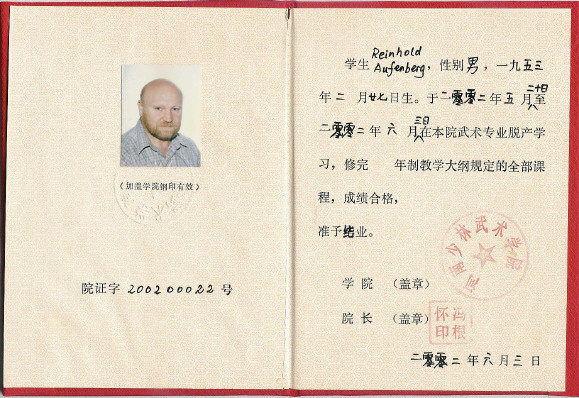 （加盖学院钢印有效）
院证字 200200022 号
学生 Reinhold Aufenberg，性别男，一九五三
年二月廿七日生。于二零零二年五月二十日至
二零零二年六月三日在本院武术专业脱产学
习，修完 年制教学大纲规定的全部课
程，成绩合格，
准予结业。
河南少林武术学院
学院（盖章）
院长（盖章）
冯根怀印
二零零二年六月三日